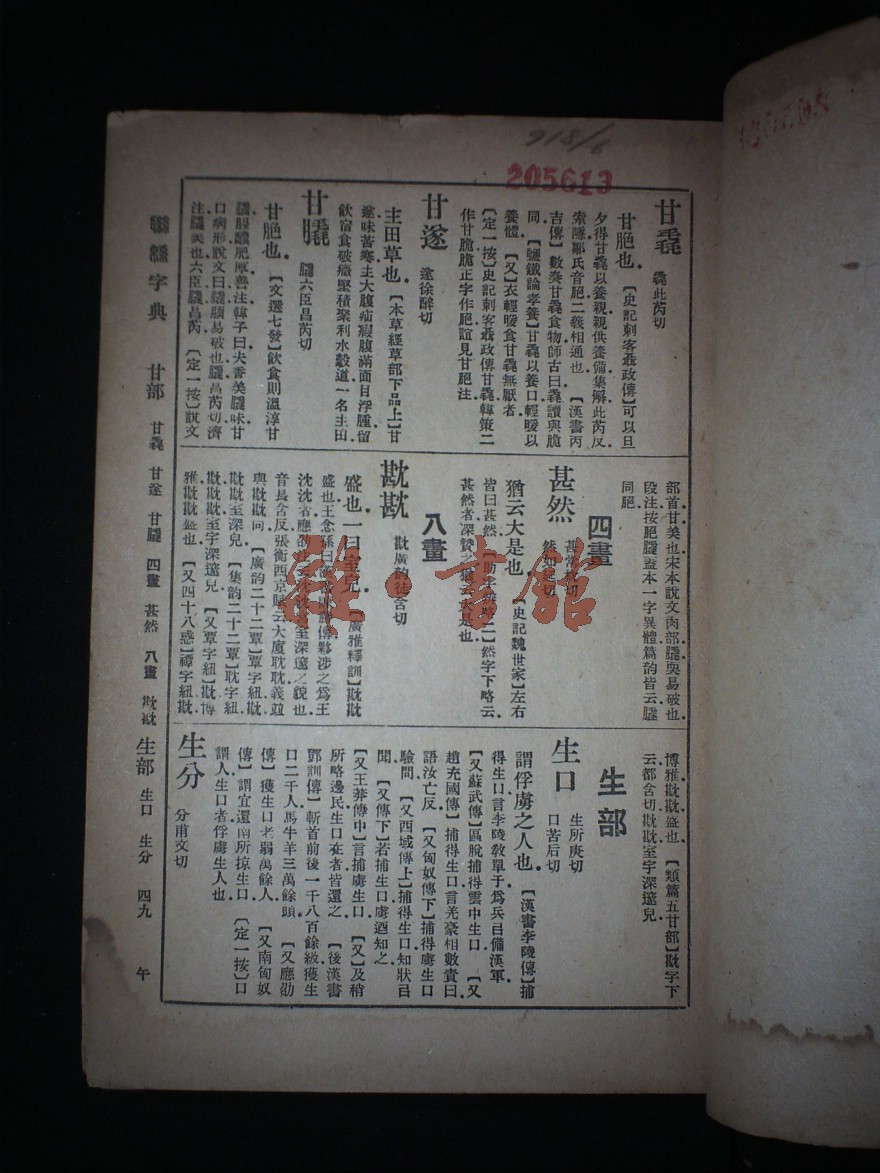 918/6
205613
甘毳
毳此芮切
甘脃也
【史記刺客聶政傳】可以旦
夕得甘毳以養親親供養備集解此芮反
索隱鄒氏音脃二義相通也
【漢書丙
吉傳】數奏甘毳食物師古曰毳讀與脃
同
【鹽鐵論孝養】甘毳以養口輕暖以
養體
【又】衣輕暖食甘毳無厭者
【定一按】史記刺客聶政傳甘毳韓策二
作甘脆脆正字作脃誼見甘脃注
甘遂
遂徐醉切
主田草也
【本草經草部下品上】甘
遂味苦寒主大腹疝瘕腹滿面目浮腫留
飲宿食破癥堅積聚利水穀道一名主田
甘膬
膬六臣昌芮切
甘脃也
【文選七發】飲食則溫淳甘
膬腥醲肥厚善注韓子曰夫香美膬味甘
口病形說文曰膬腝易破也膬昌芮切濟
注膬美也六臣膬昌芮
【定一按】說文
部首甘美也宋本說文肉部膬耎易破也
段注按脃膬蓋本一字異體篇韵皆云膬
同脃
四畫
甚然
甚常枕切
然如
切
猶云大是也
【史記魏世家】左右
皆曰甚然
助字
二】然字下略云
甚然者深贊
猶云大是也
八畫
㽎㽎
㽎廣韵徒含切
盛也一曰室皃
【廣雅釋訓】㽎㽎
盛也王念孫曰
傳夥涉之爲王
沈沈者應劭
室深邃之貌也
音長含反張衡西京賦云大廈耽耽義竝
與㽎㽎同
【廣韵二十二覃】覃字紐
㽎㽎室深皃
【集韵二十二覃】耽字紐
㽎㽎㽎至宇深邃皃
【又覃字紐】㽎博
雅㽎㽎盛也
【又四十八感】禫字紐㽎
博雅㽎㽎盛也
【類篇五甘部】㽎字下
云都含切㽎㽎室宇深邃皃
生部
生口
生所庚切
口苦后切
謂俘虜之人也
【漢書李陵傳】捕
得生口言李陵敎單于爲兵㠯備漢軍
【又蘇武傳】區脫捕得雲中生口
【又
趙充國傳】捕得生口言羌豪相數責曰
語汝亡反
【又匈奴傳下】捕得虜生口
驗問
【又西域傳上】捕得生口知狀㠯
聞
【又傳下】若捕生口虜迺知之
【又王莽傳中】言捕虜生口
【又】及稍
所略邊民生口在者皆還之
【後漢書
鄧訓傳】斬首前後一千八百餘級獲生
口二千人馬牛羊三萬餘頭
【又應劭
傳】獲生口老弱萬餘人
【又南匈奴
傳】謂宜還南所掠生口
【定一按】口
謂人生口者俘虜生人也
生分
分甫文切
聯緜字典
甘部
甘毳
甘遂
甘膬
四畫
甚然
八畫
㽎㽎
生部
生口
生分
四九
午
書館